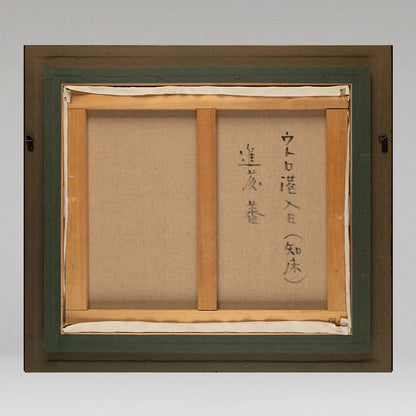 ウトロ港入日(知床)
進藤蕃